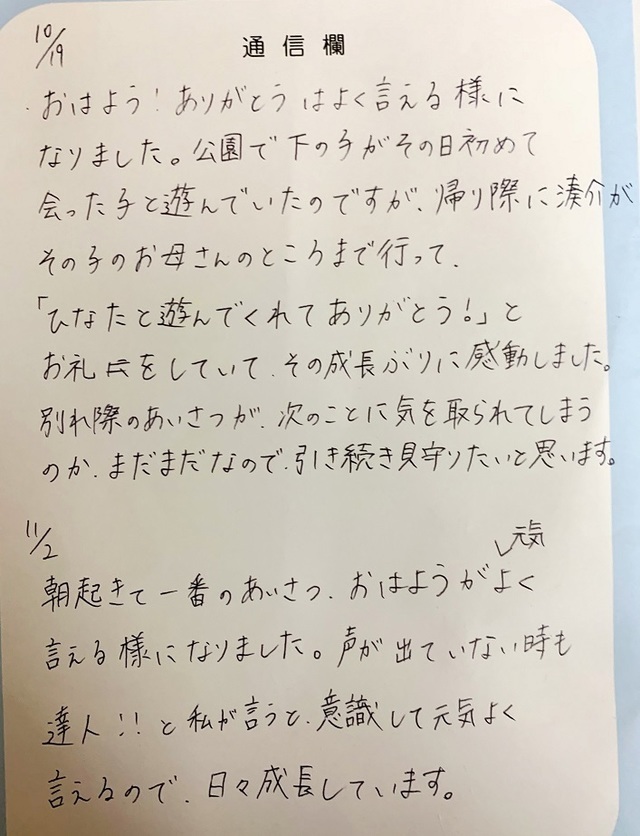 10/19
通信欄
おはよう!ありがとうはよく言える様に
なりました。公園で下の子がその日初めて
会った子と遊んでいたのですが、帰り際に湊介が
その子のお母さんのところまで行って、
「ひなたと遊んでくれてありがとう!」と
お礼をしていて、その成長ぶりに感動しました。
別れ際のあいさつが、次のことに気を取られてしまう
のか、まだまだなので、引き続き見守りたいと思います。
11/2
元気
朝起きて一番のあいさつ、おはようがよく
言える様になりました。声が出ていない時も
達人!!と私が言うと、意識して元気よく
言えるので、日々成長しています。